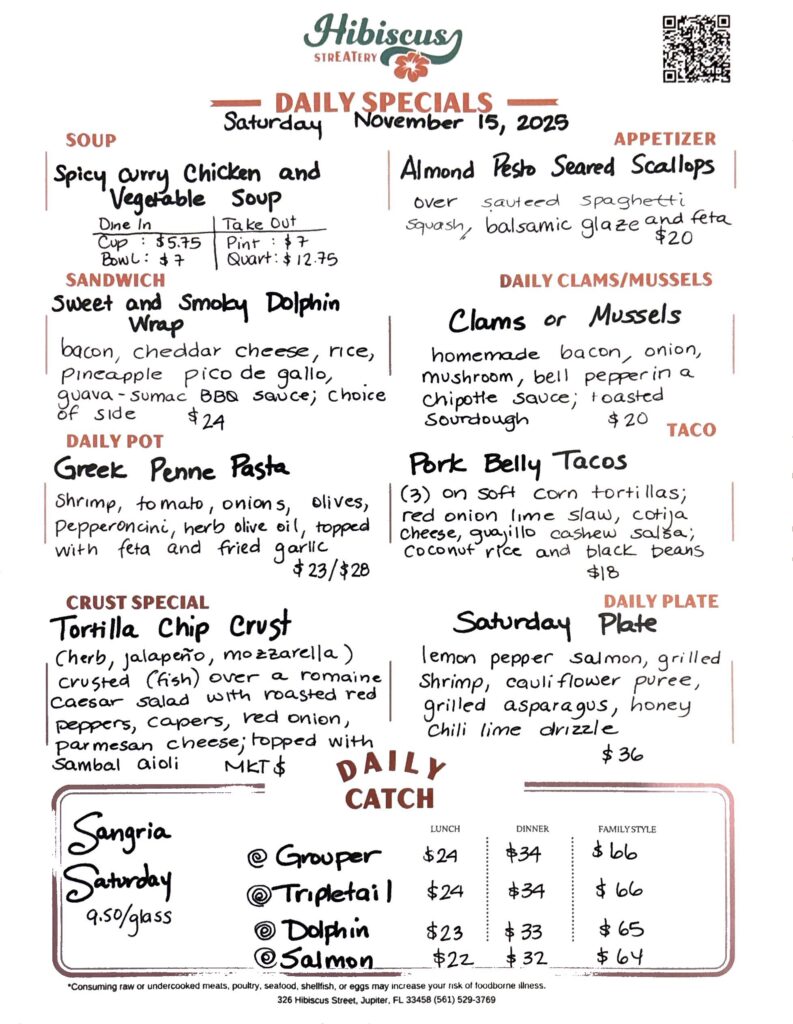 Hibiscus
STREATERY
DAILY SPECIALS
Saturday November 15, 2025
SOUP
Spicy curry Chicken and
Vegetable Soup
Dine In | Take Out
Cup : $5.75 | Pint : $7
Bowl : $7 | Quart : $12.75
APPETIZER
Almond Pesto Seared Scallops
over sauteed spaghetti
squash, balsamic glaze and feta
$20
SANDWICH
Sweet and Smoky Dolphin
Wrap
bacon, cheddar cheese, rice,
pineapple pico de gallo,
guava-sumac BBQ sauce; choice
of side $24
DAILY CLAMS/MUSSELS
Clams or Mussels
homemade bacon, onion,
mushroom, bell pepper in a
chipotle sauce; toasted
sourdough $20
DAILY POT
Greek Penne Pasta
Shrimp, tomato, onions, olives,
pepperoncini, herb olive oil, topped
with feta and fried garlic
$23/$28
TACO
Pork Belly Tacos
(3) on soft corn tortillas;
red onion lime slaw, cotija
cheese, guajillo cashew salsa;
coconut rice and black beans
$18
CRUST SPECIAL
Tortilla Chip Crust
(herb, jalapeño, mozzarella)
crusted (fish) over a romaine
caesar salad with roasted red
peppers, capers, red onion,
parmesan cheese; topped with
sambal aioli MKT $
DAILY PLATE
Saturday Plate
lemon pepper salmon, grilled
shrimp, cauliflower puree,
grilled asparagus, honey
chili lime drizzle
$36
DAILY
CATCH
Sangria
Saturday
9.50/glass
LUNCH DINNER FAMILY STYLE
Grouper $24 $34 $66
Tripletail $24 $34 $66
Dolphin $23 $33 $65
Salmon $22 $32 $64
*Consuming raw or undercooked meats, poultry, seafood, shellfish, or eggs may increase your risk of foodborne illness.
326 Hibiscus Street, Jupiter, FL 33458 (561) 529-3769